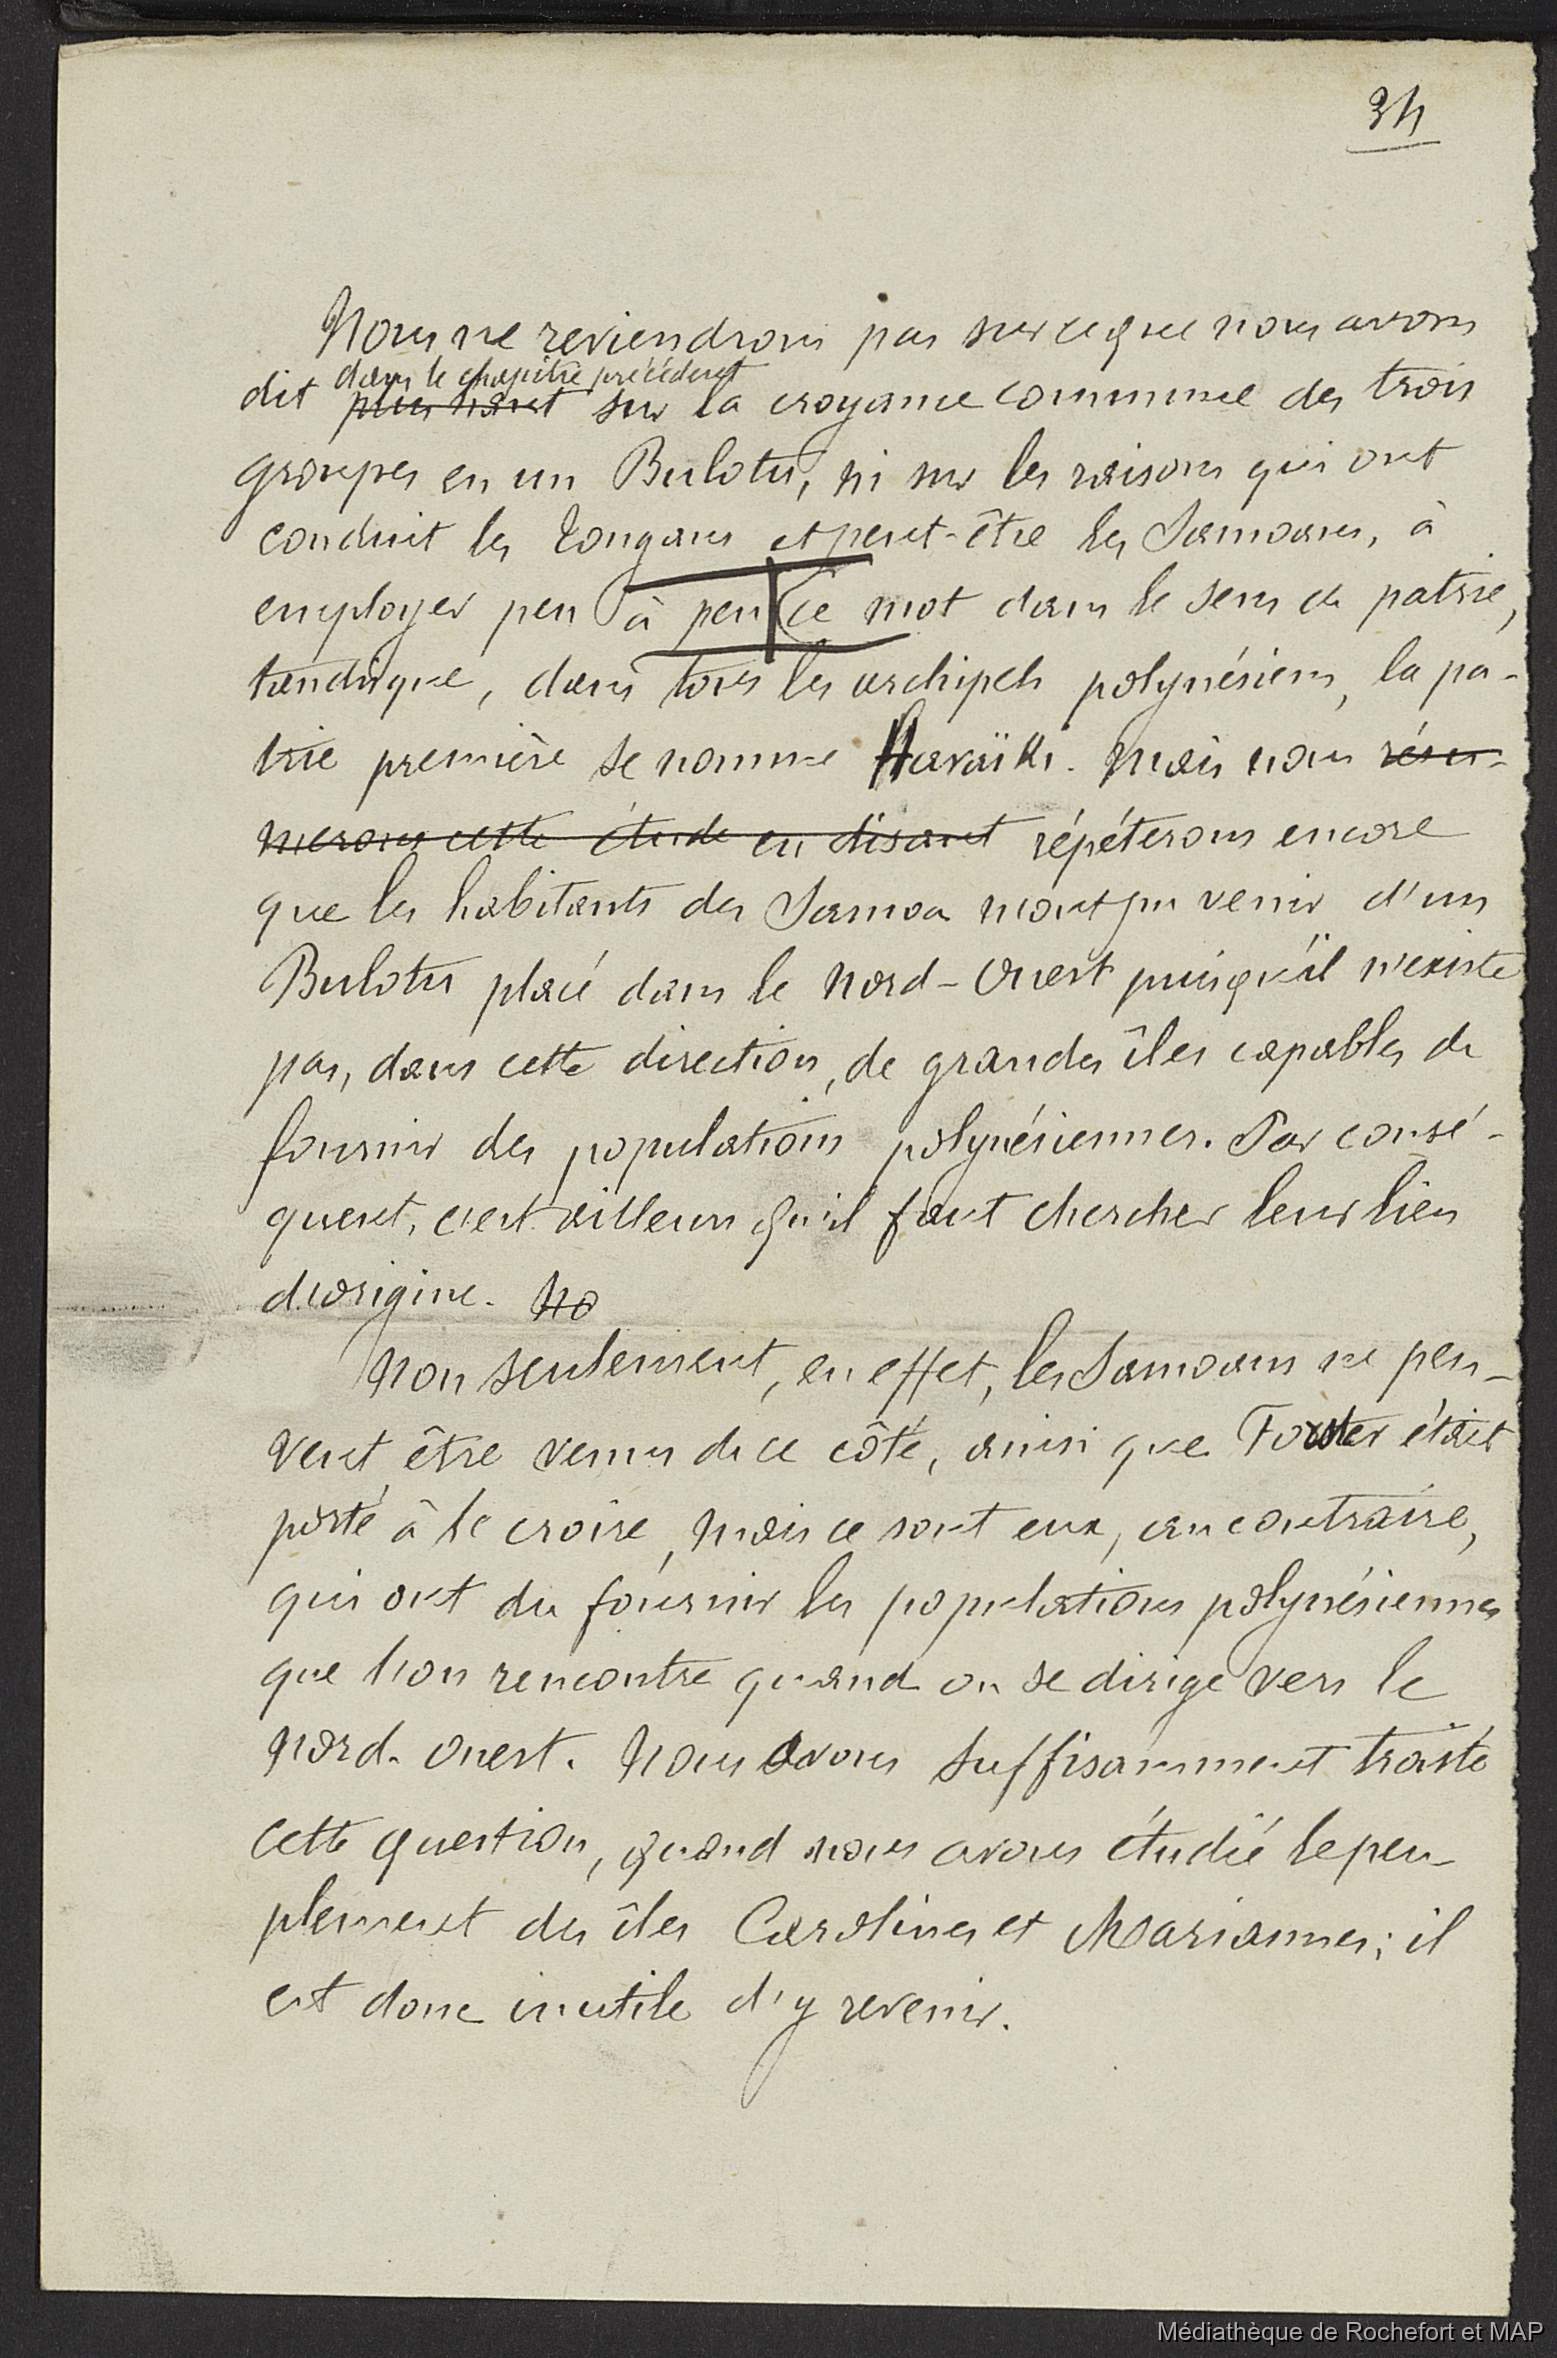 34
Nous ne reviendrons pas sur ce que nous avons
dans le chapitre précédent
dit plus haut sur la croyance commune des trois
groupes en un Bulotu, ni sur les raisons qui ont
conduit les Tongans et peut-être les Samoans, à
employer peu à peu ce mot dans le sens de patrie,
tandisque, dans tous les archipels polynésiens, la pa-
trie première se nomme Havaïki. Mais nous résu-
merons cette étude en disant répéterons encore
que les habitants des Samoa n'ont pu venir d'un
Bulotu placé dans le Nord-Ouest puisqu'il n'existe
pas, dans cette direction, de grandes îles capables de
fournir des populations polynésiennes. Par consé-
quent, c'est ailleurs qu'il faut chercher leur lieu
d'origine. No
Non seulement, en effet, les Samoans ne peu-
vent être venus de ce côté, ainsi que Forster était
porté à le croire, mais ce sont eux, au contraire,
qui ont du fournir les populations polynésiennes
que l'on rencontre quand on se dirige vers le
Nord-Ouest. Nous avons suffisamment traité
cette question, quand nous avons étudié le peu-
plement des îles Carolines et Mariannes; il
est donc inutile d'y revenir.
Médiathèque de Rochefort et MAP